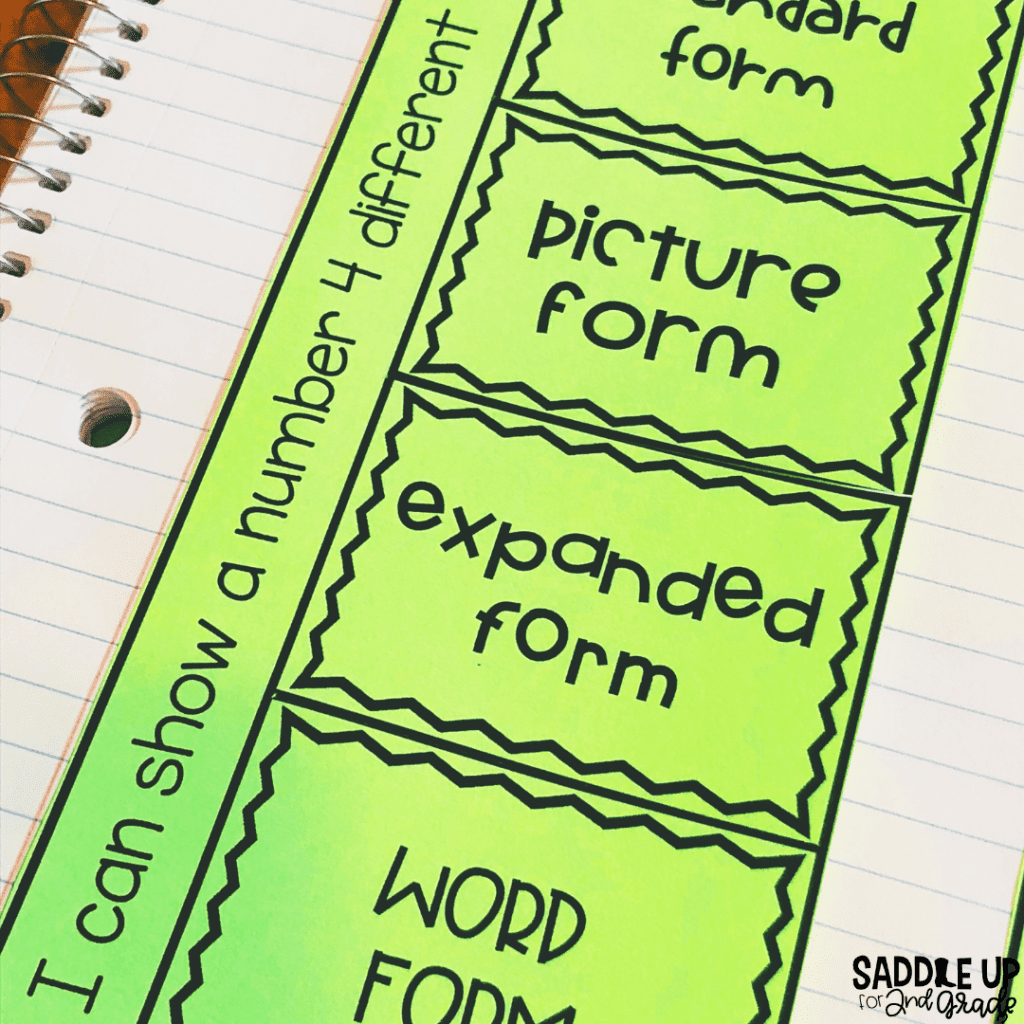 I can show a number 4 different
form
picture
form
expanded
form
WORD
FORM
SADDLE UP
for 2nd Grade